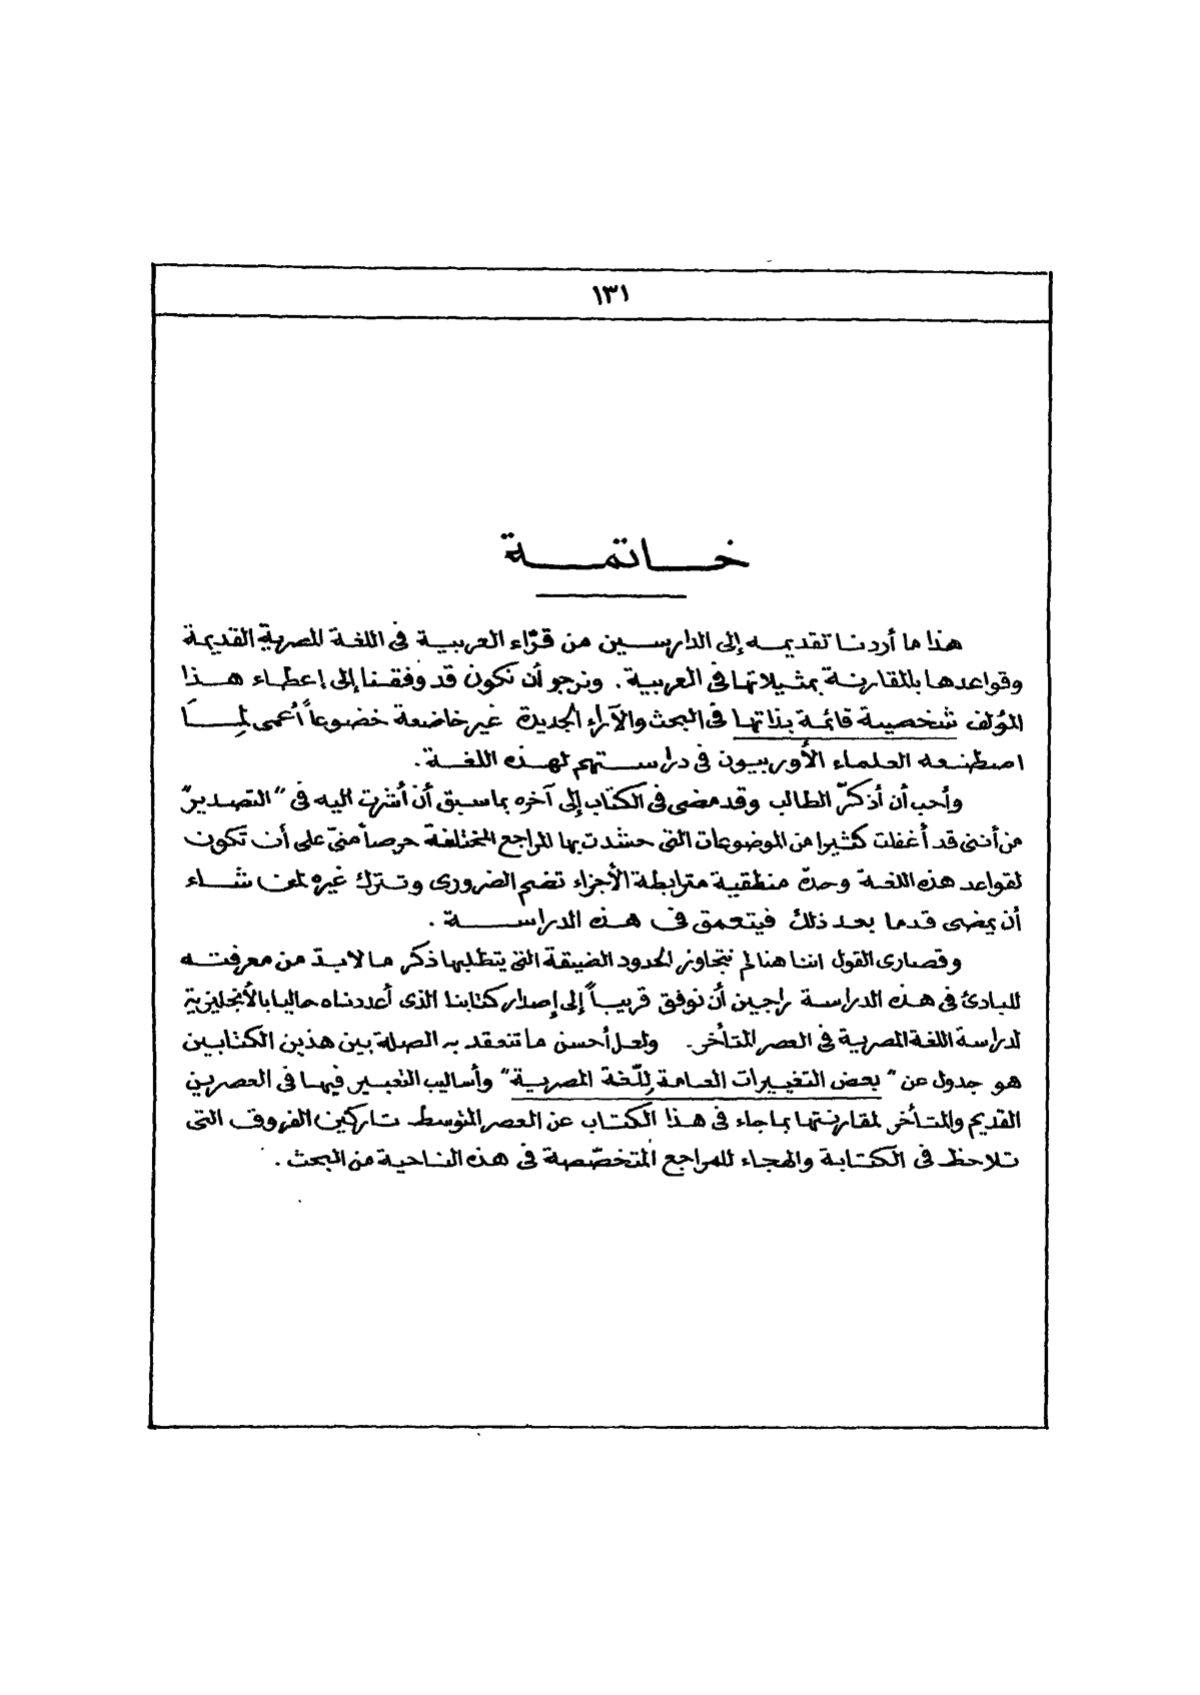 ١٣١
خاتمة
هذا ما أردنا تقديمه إلى الدارسين من قرّاء العربية فى اللغة المصرية القديمة
وقواعدها بالمقارنة بمثيلاتها فى العربية . ونرجو أن نكون قد وفقنا إلى إعطاء هذا
المؤلف شخصية قائمة بذاتها فى البحث والآراء الجديدة غير خاضعة خضوعاً أعمى لِمَا
اصطنعه العلماء الأوربيون فى دراستهم لهذه اللغة .
وأحب أن أذكرّ الطالب وقد مضى فى الكتاب إلى آخره بما سبق أن أشرت اليه فى "التصدير"
من أننى قد أغفلت كثيرا من الموضوعات التى حشدت بها المراجع المختلفة حرصاً منىّ على أن تكون
لقواعد هذه اللغة وحدة منطقية مترابطة الأجزاء تضم الضرورى وتترك غيره لمن شاء
أن يمضى قدما بعد ذلك فيتعمق فى هذه الدراسة .
وقصارى القول اننا هنا لم نتجاوز الحدود الضيقة التى يتطلبها ذكر ما لابدّ من معرفته
للبادئ فى هذه الدراسة راجين أن نوفق قريباً إلى إصدار كتابنا الذى أعددناه حاليا بالأنجليزية
لدراسة اللغة المصرية فى العصر المتأخر. ولعل أحسن ما تنعقد به الصلة بين هذين الكتابين
هو جدول عن "بعض التغييرات العامة لِلّغة المصرية" وأساليب التعبير فيها فى العصرين
القديم والمتأخر لمقارنتها بما جاء فى هذا الكتاب عن العصر المتوسط تاركين الفروق التى
تلاحظ فى الكتابة والهجاء للمراجع المتخصّصة فى هذه الناحية من البحث .